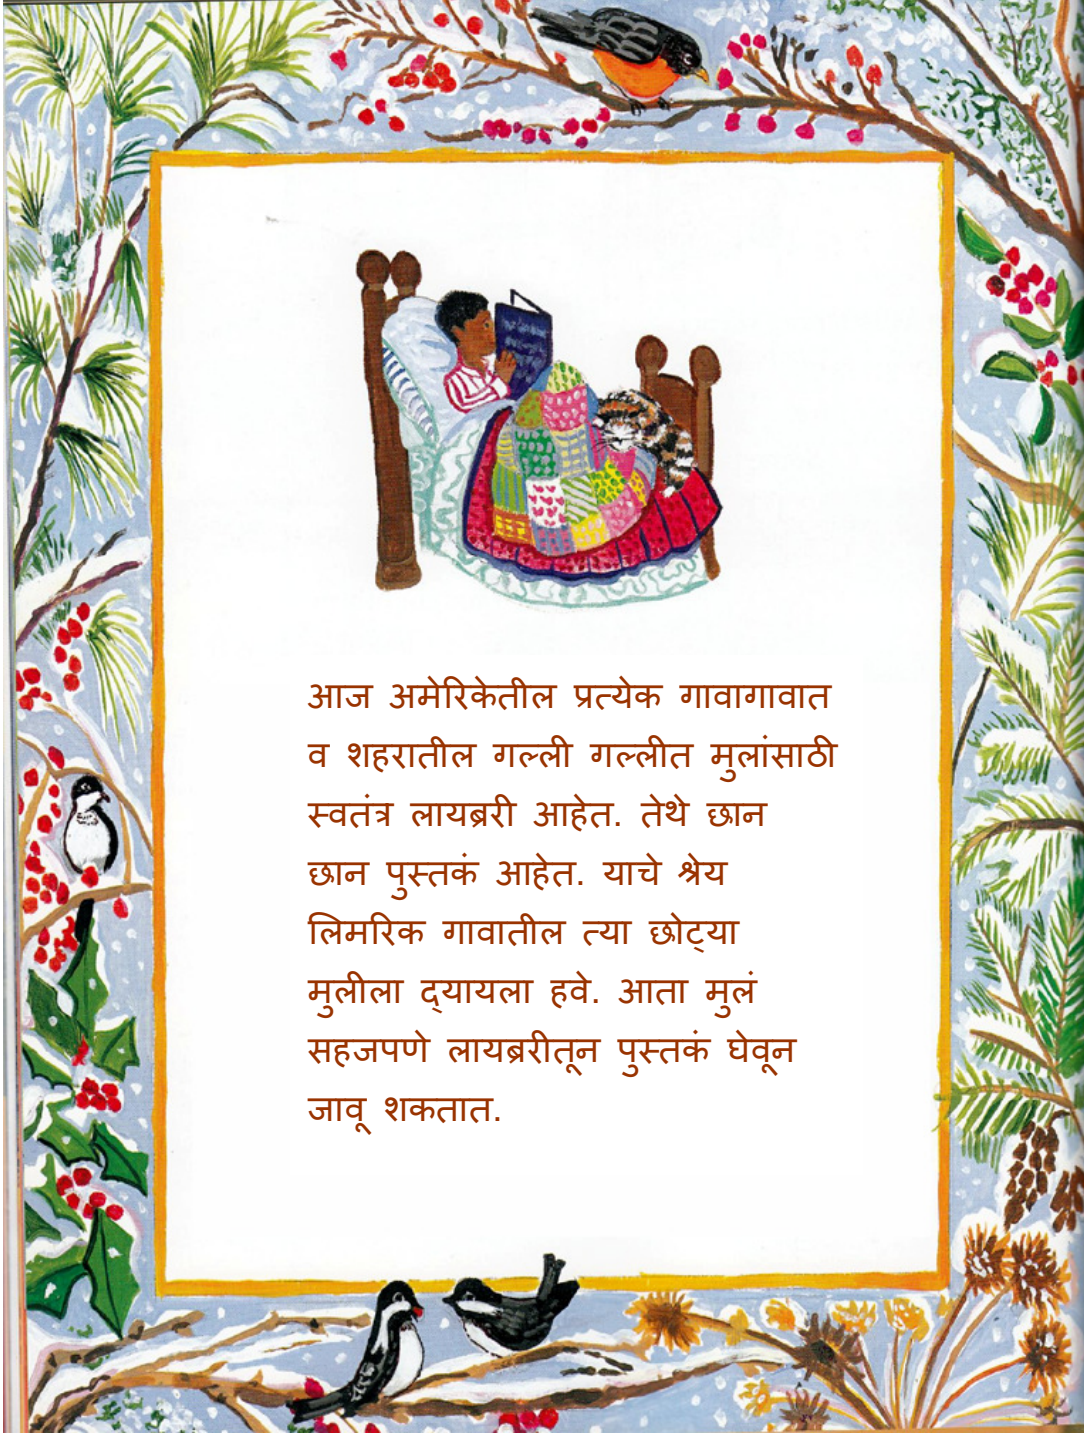 आज अमेरिकेतील प्रत्येक गावागावात
व शहरातील गल्ली गल्लीत मुलांसाठी
स्वतंत्र लायब्ररी आहेत. तेथे छान
छान पुस्तकं आहेत. याचे श्रेय
लिमरिक गावातील त्या छोट्या
मुलीला द्यायला हवे. आता मुलं
सहजपणे लायब्ररीतून पुस्तकं घेवून
जावू शकतात.